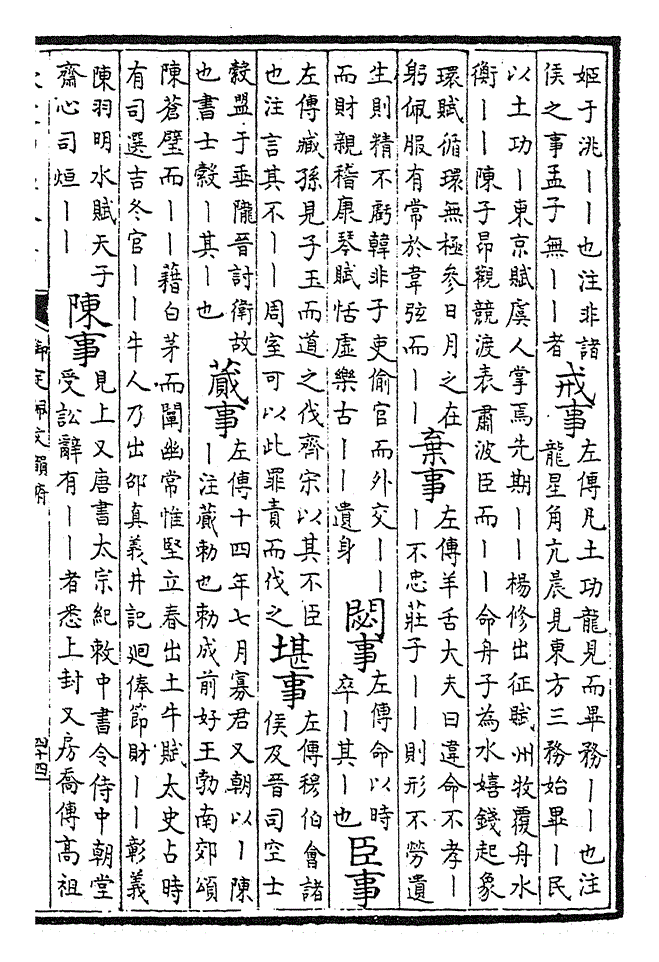 姬于洮丨丨也注非諸
侯之事孟子無丨丨者
戒事
左傳凡土功龍見而畢務丨丨也注
龍星角亢晨見東方三務始畢丨民
以土功丨東京賦虞人掌焉先期丨丨楊修出征賦州牧覆舟水
衡丨丨陳子昂觀競渡表肅波臣而丨丨命舟子為水嬉錢起象
環賦循環無極參日月之在
躬佩服有常於韋弦而丨丨
棄事
左傳羊舌大夫曰違命不孝丨
丨不忠莊子丨丨則形不勞遺
生則精不虧韓非子吏偷官而外交丨丨
而財親稽康琴賦恬虛樂古丨丨遺身
閟事
左傳命以時
卒丨其丨也
臣事
左傳臧孫見子玉而道之伐齊宋以其不臣
也注言其不丨丨周室可以此罪責而伐之
堪事
左傳穆伯會諸
侯及晉司空士
縠盟于垂隴晉討衛故
也書士縠丨其丨也
蕆事
左傳十四年七月寡君又朝以丨陳
丨注蕆勅也勅成前好王勃南郊頌
陳蒼璧而丨丨藉白茅而闡幽常惟堅立春出土牛賦太史占時
有司選吉冬官丨丨牛人乃出邵真義井記廻俸節財丨丨彰義
陳羽明水賦天子
齋心司烜丨丨
陳事
見上又唐書太宗紀敕中書令侍中朝堂
受訟辭有丨丨者悉上封又房喬傳高祖
御定佩文韻府
四十四